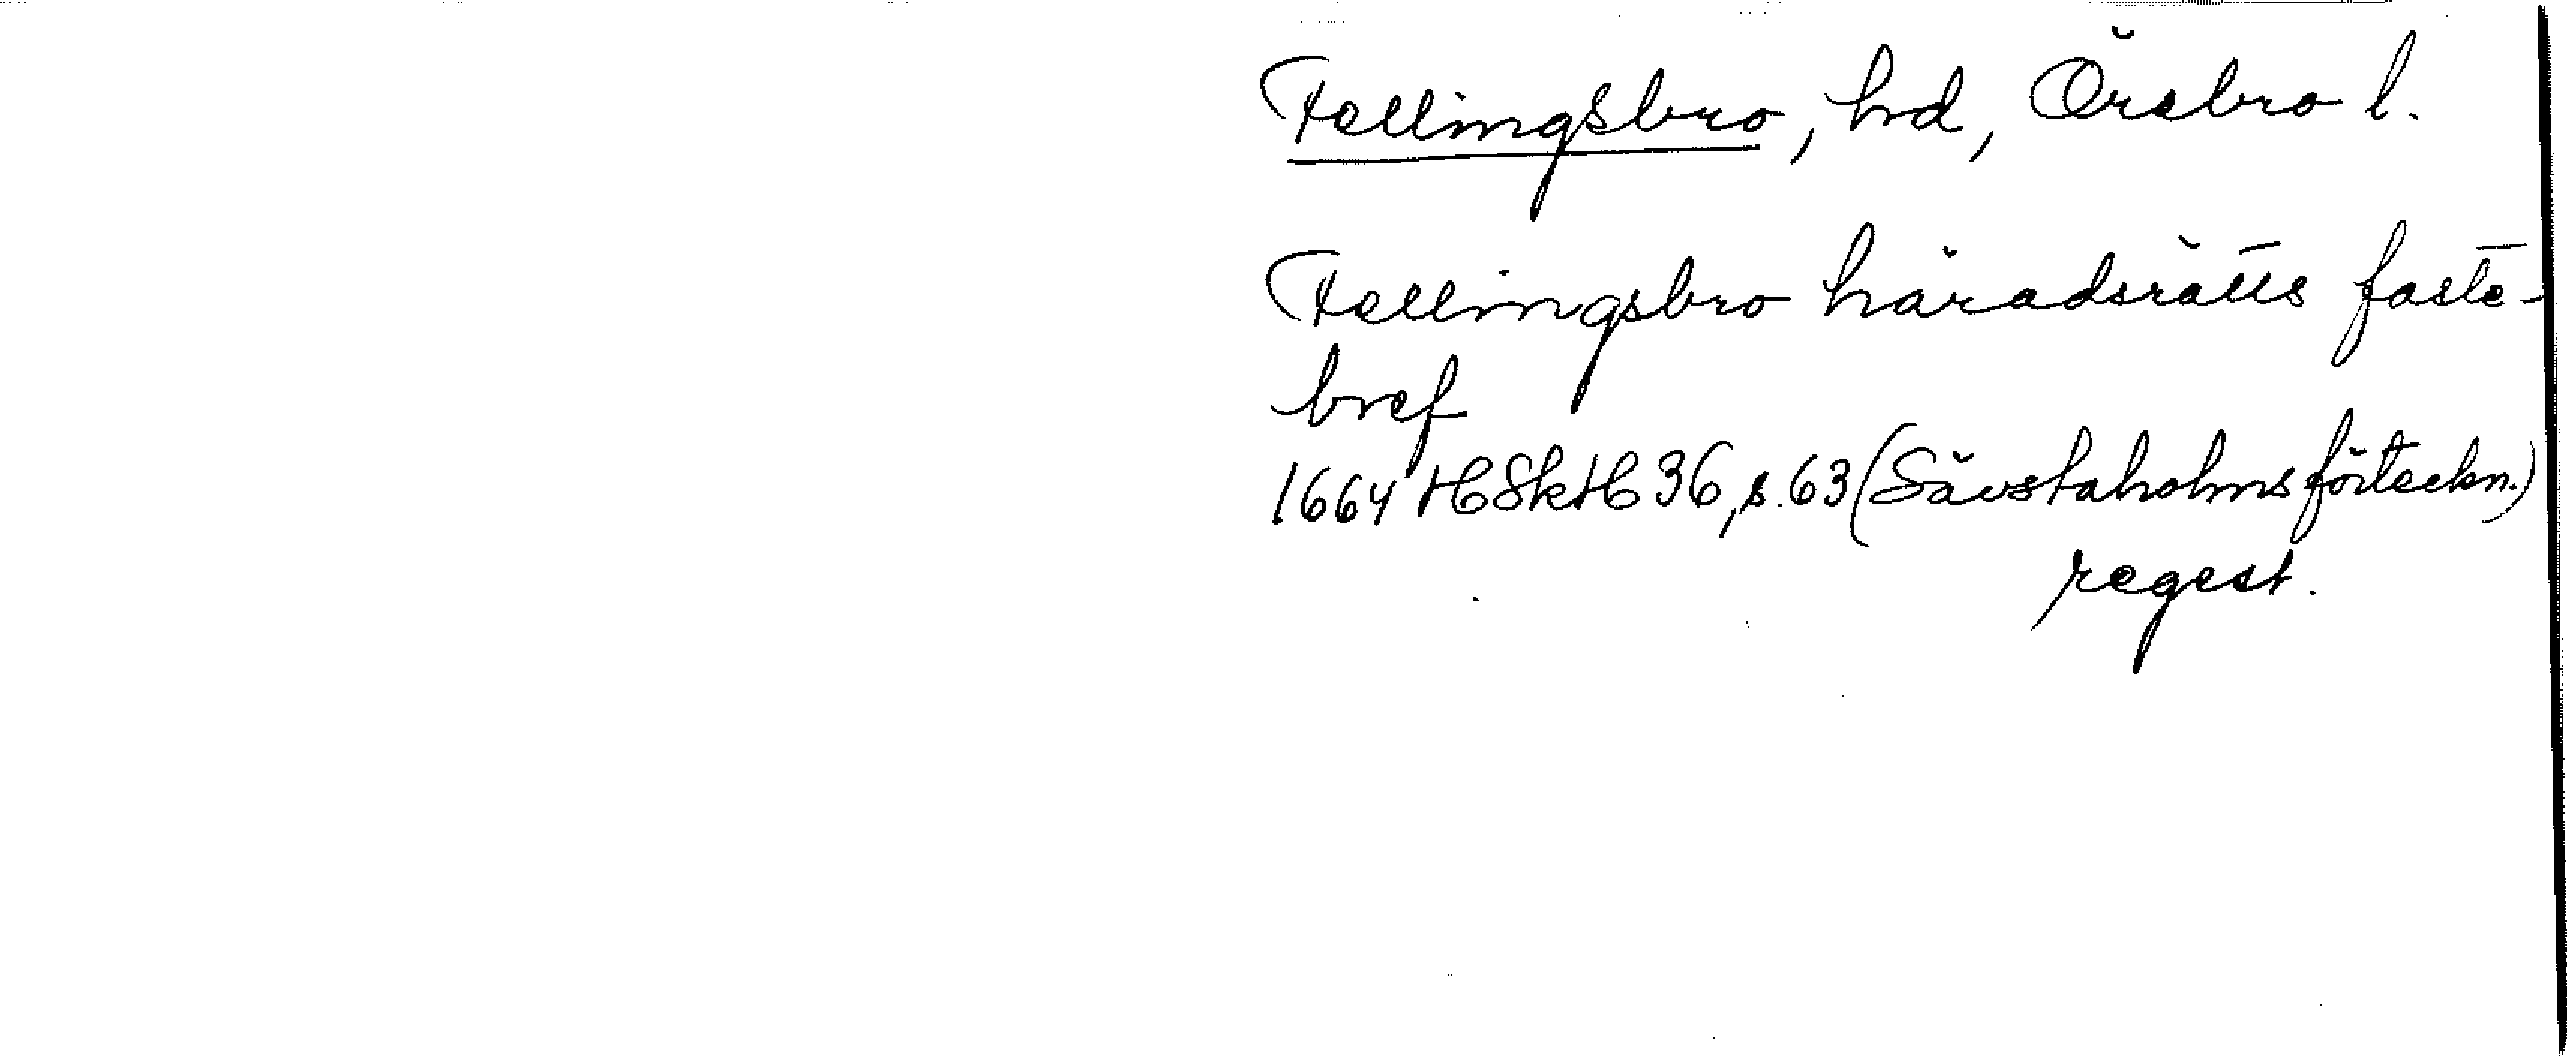 Fellingsbro, hd, Örebro l.
Fellingsbro häradsrätts faste-
bref
1664 HSkH 36, s. 63 (Sävstaholmsförteckn.)
regest.